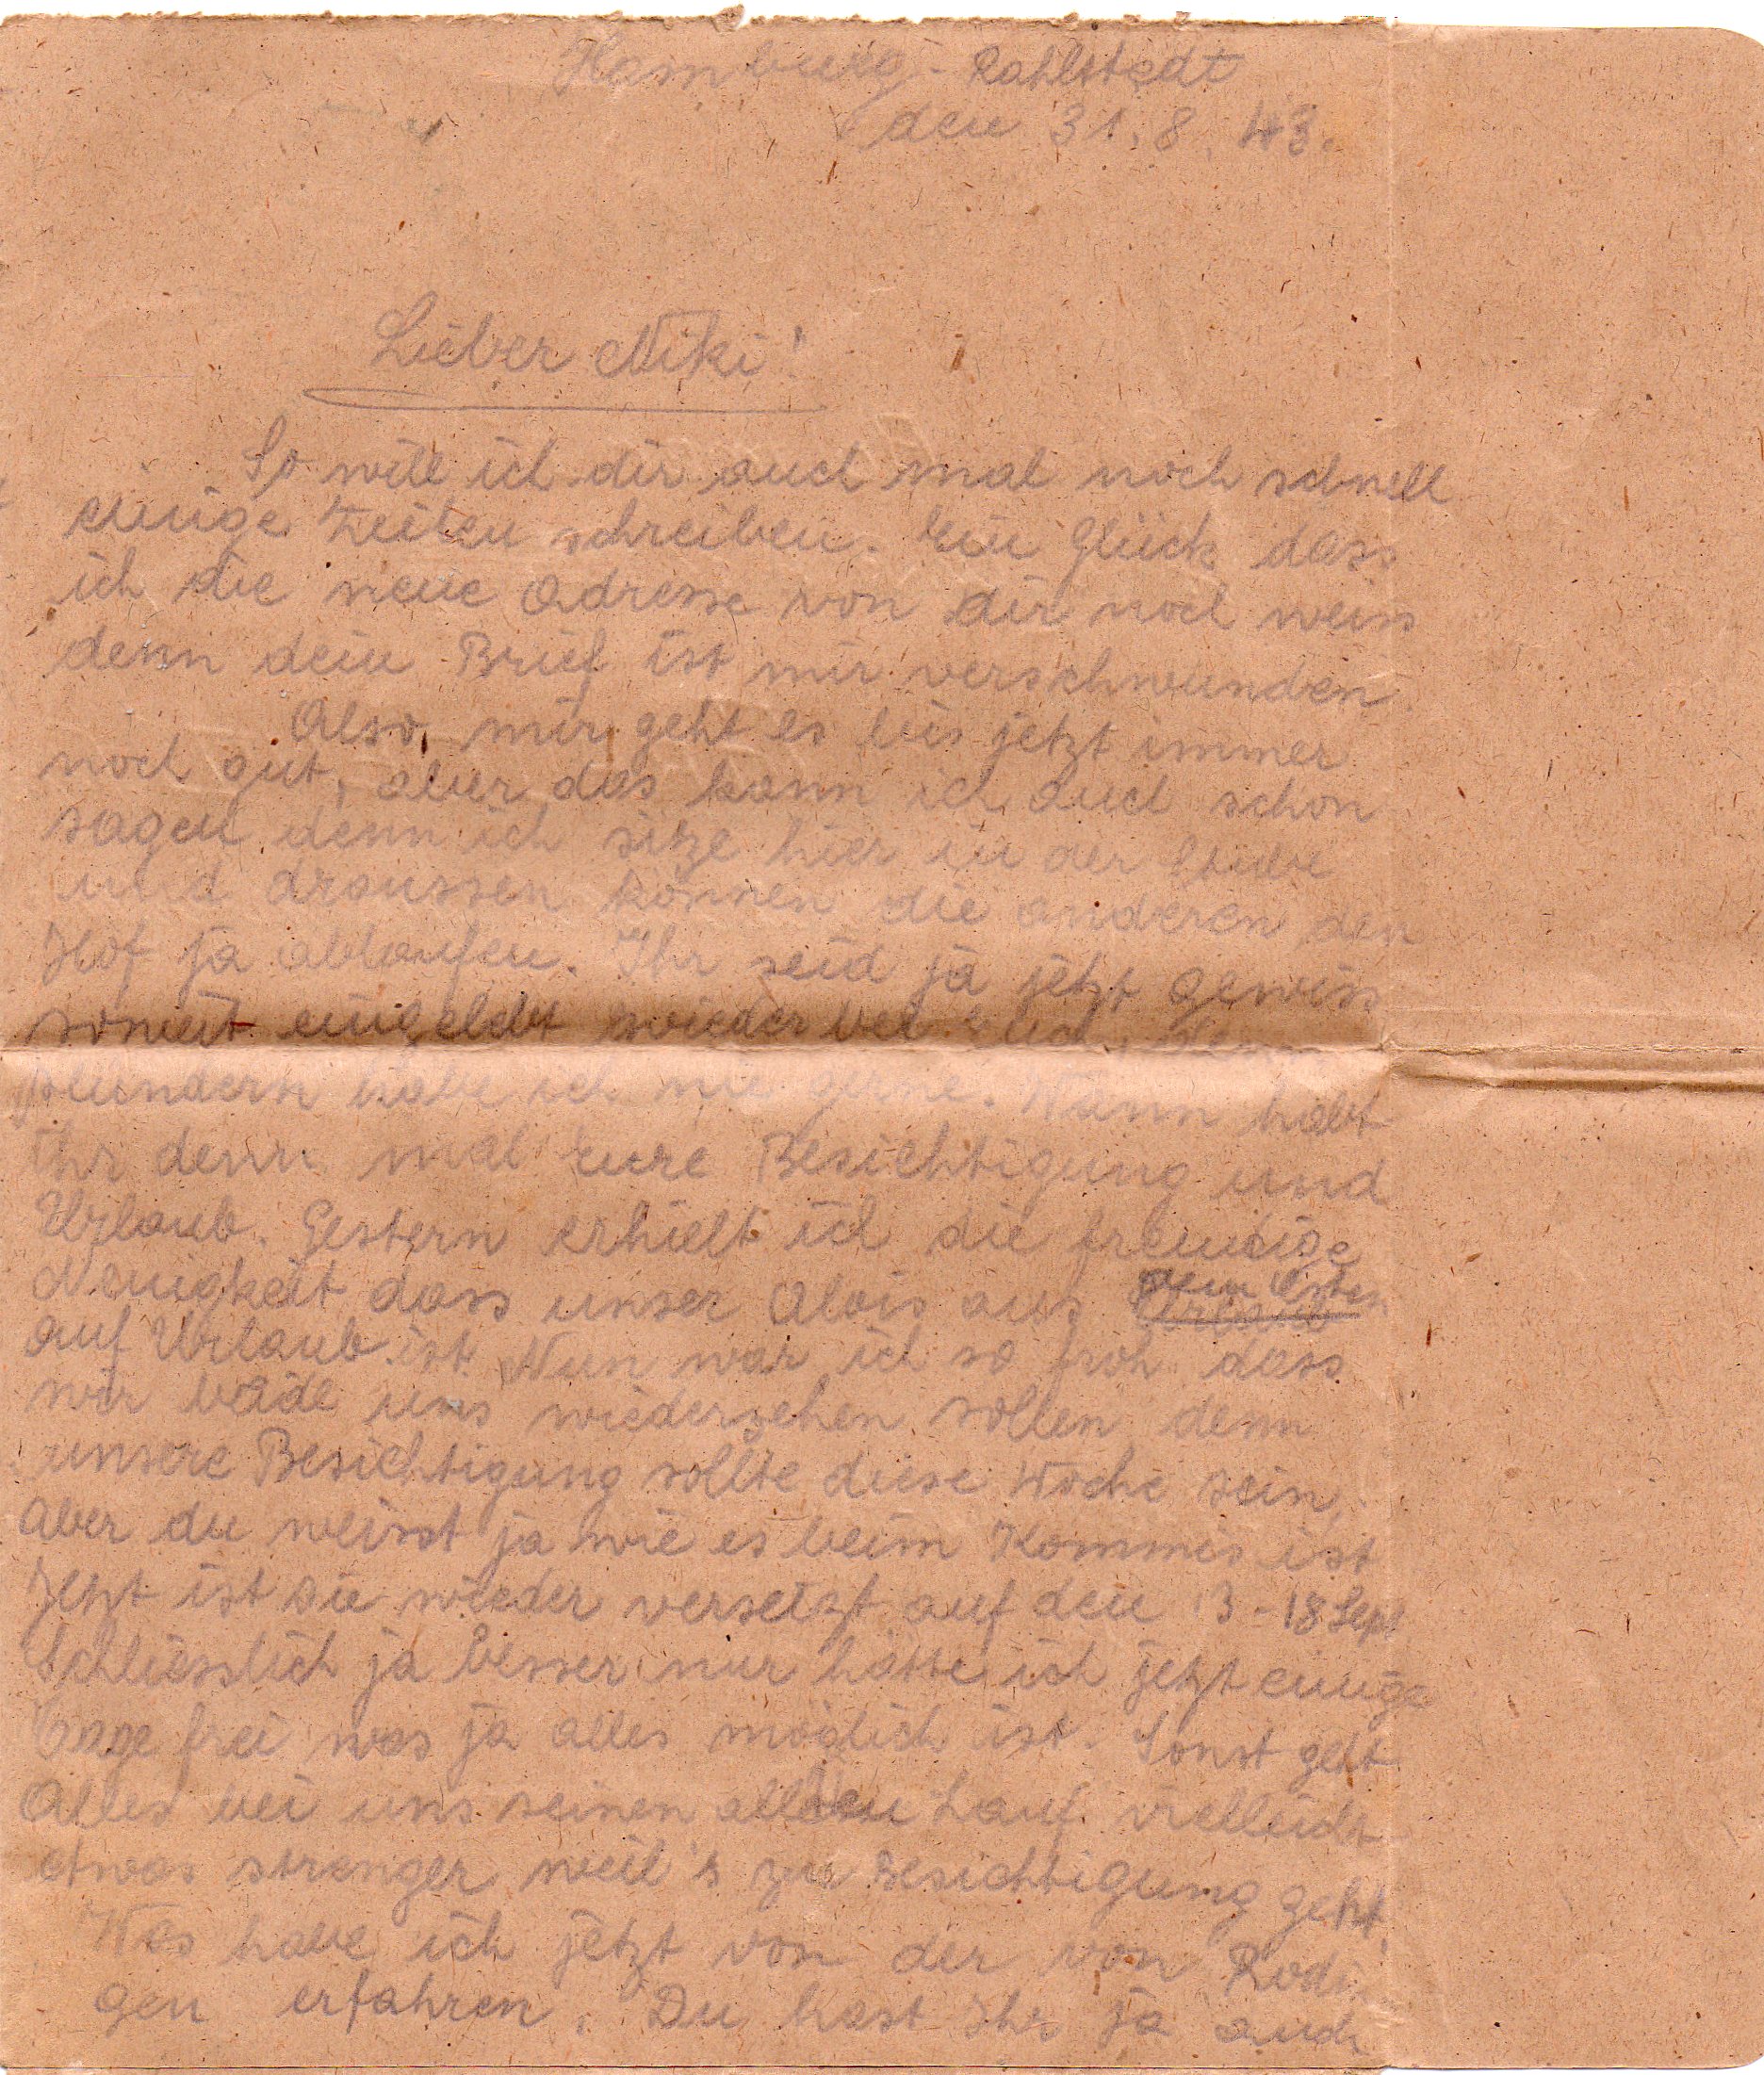 Hamburg - Rahlstedt
den 31. 8. 43.
Lieber Niki!
So will ich dir auch mal noch schnell
einige Zeilen schreiben. Ein Glück dass
ich die neue Adresse von dir noch weiss
denn dein Brief ist mir verschwunden.
Also, mir geht es bis jetzt immer
noch gut, aber das kann ich auch schon
sagen denn ich sitze hier in der Stube
und draussen können die anderen den
Hof ja ablaufen. Ihr seid ja jetzt gewiss
soweit eingelebt wieder bei
habe ich nie gerne. Wann habt
ihr denn mal eure Besichtigung und
Urlaub. Gestern erhielt ich die freudige
Neuigkeit dass unser Alois aus dem Osten
auf Urlaub ist. Nun war ich so froh dass
wir beide uns wiedersehen sollen denn
unsere Besichtigung sollte diese Woche sein,
Aber du weisst ja wie es beim Kommis ist
Jetzt ist sie wieder versetzt auf den 13 - 18 Sept
Schliesslich ja besser nur hätte ich jetzt einige
Tage frei was ja alles möglich ist. Sonst geht
Alles bei uns seinen alten Lauf vielleicht
etwas strenger weil's zur Besichtigung geht.
Was habe ich jetzt von der von Rodin
gen erfahren. Du hast Ihr ja auch